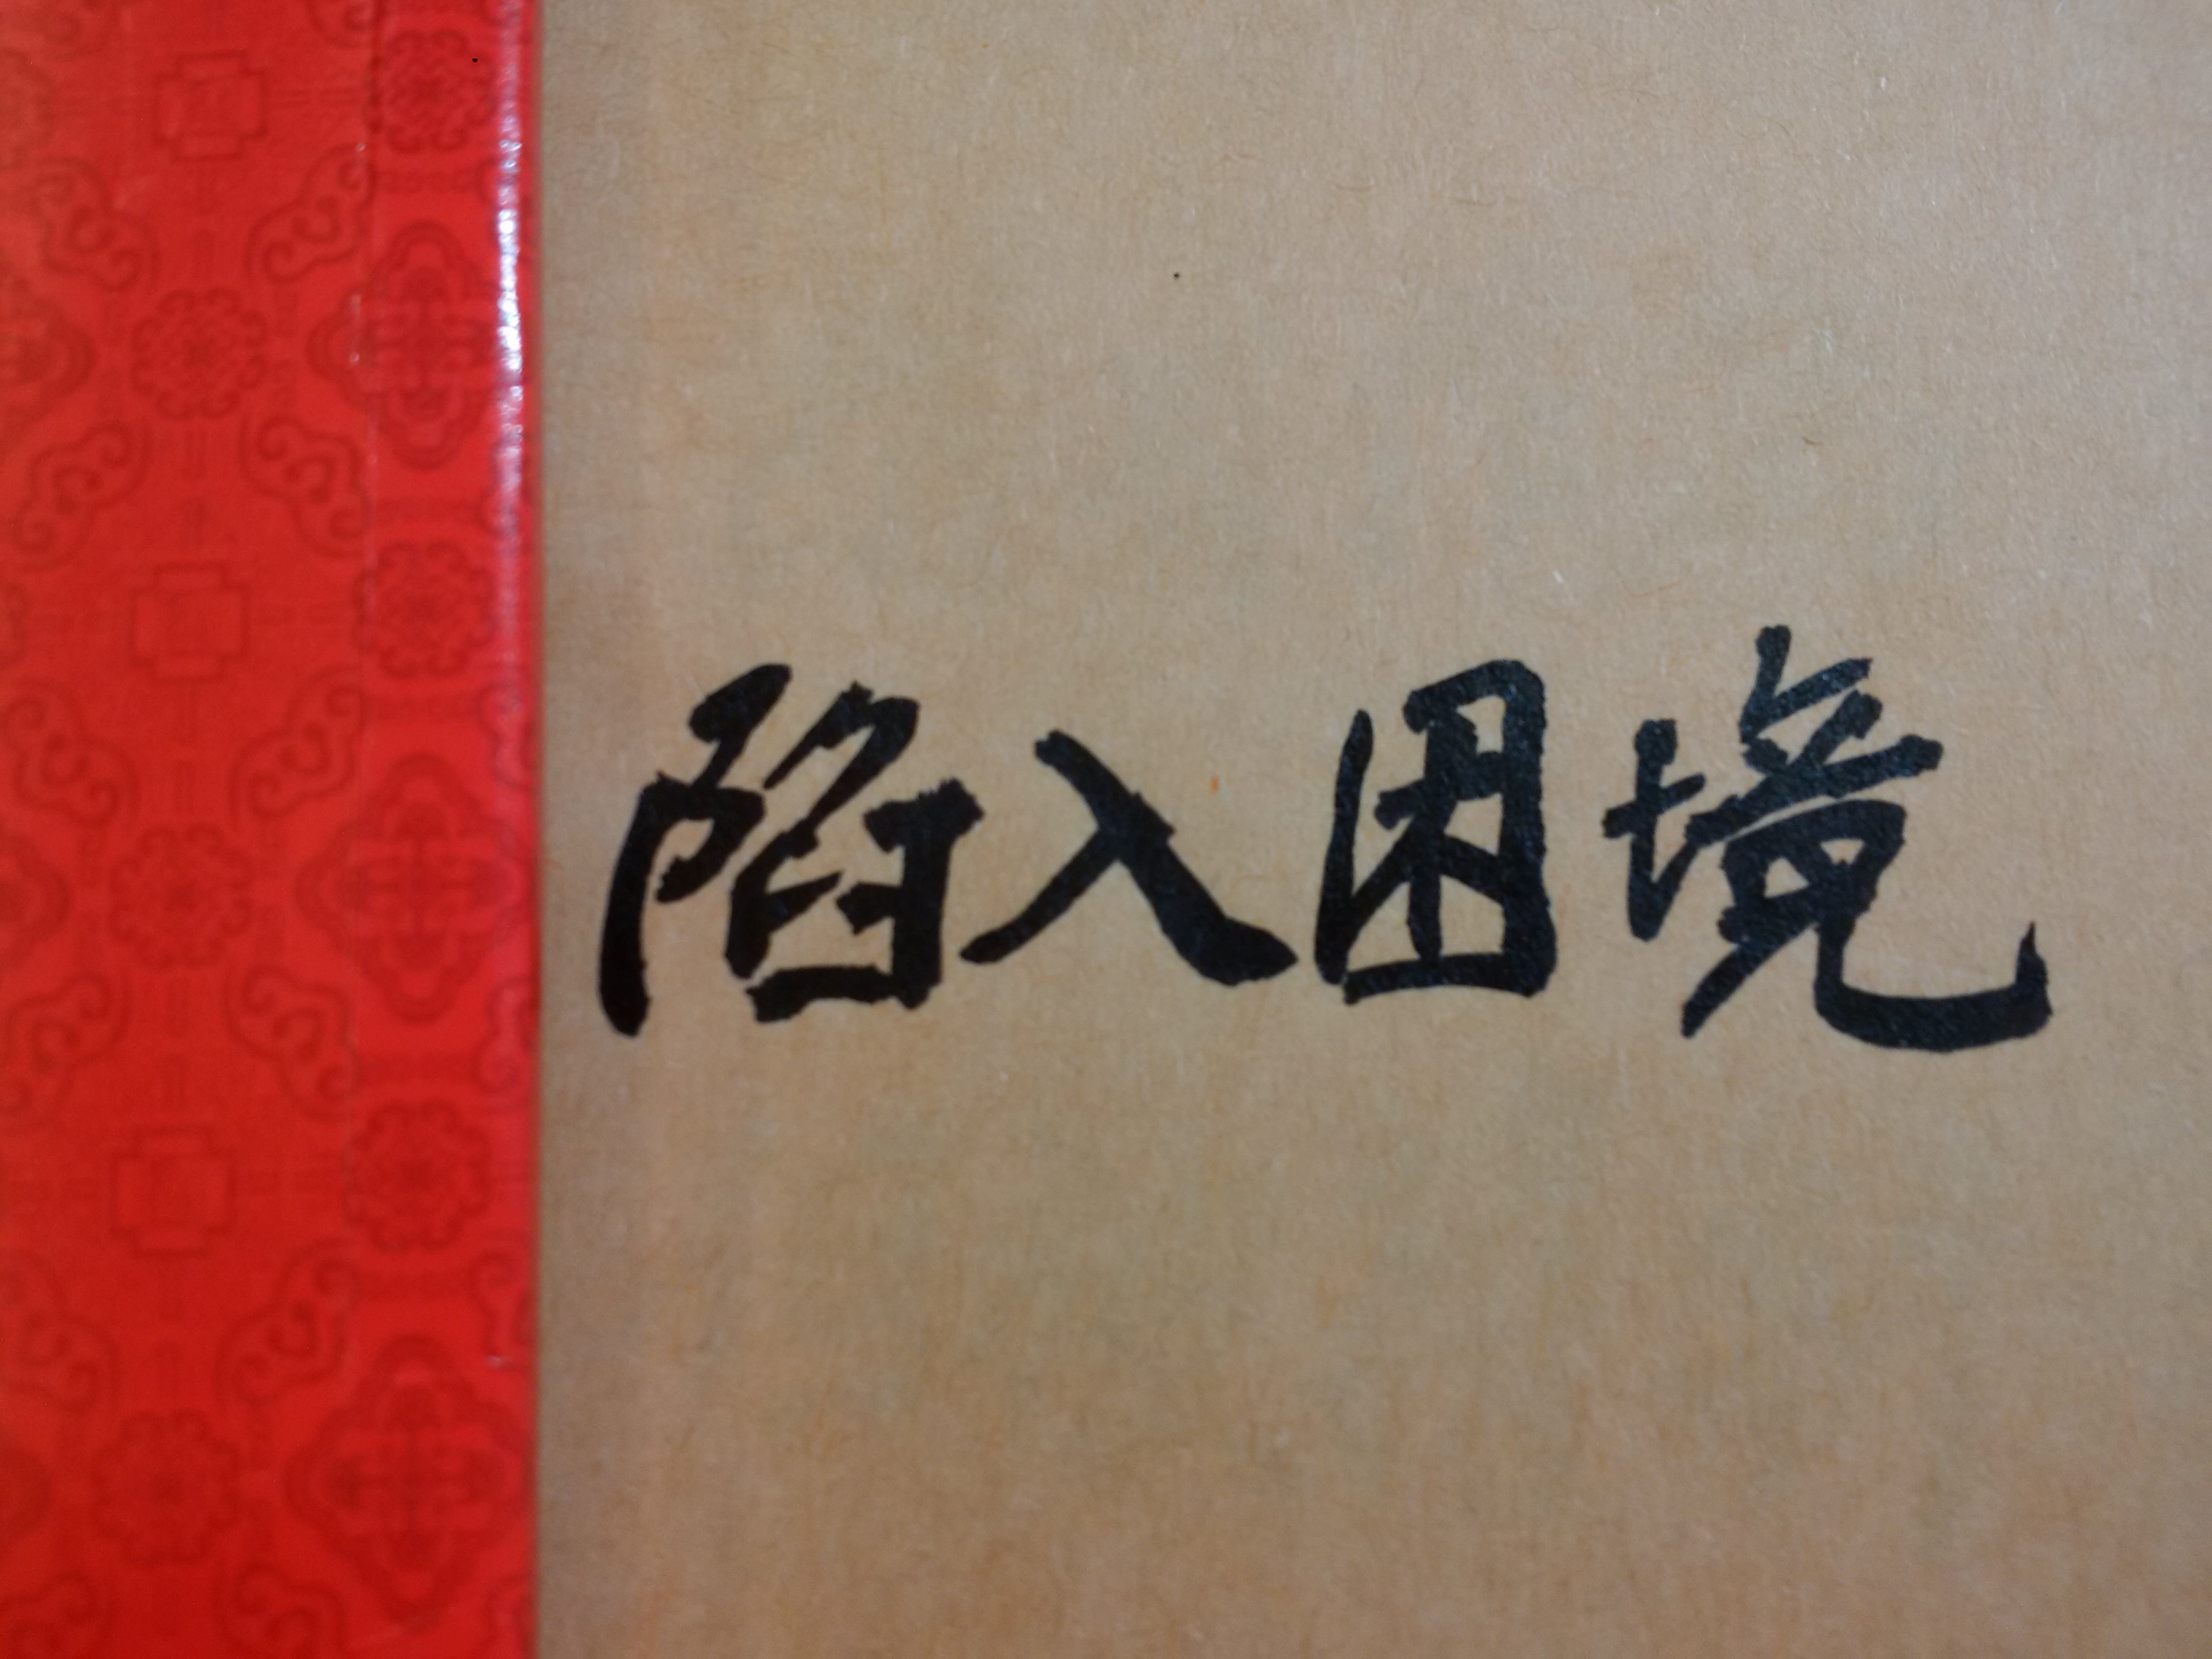 陷入困境